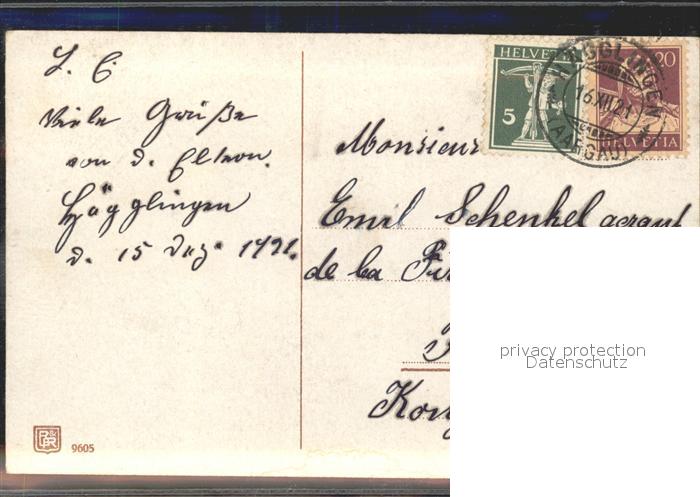 L. E.
Viele Grüße
von d. Eltern.
Hägglingen
d. 15 Dez. 1921.
HELVETIA
5
20
HELVETIA
HÄGGLINGEN
16.XII.21
(AARGAU)
Monsieur
Emil Schenkel
de la
privacy protection
Datenschutz
9605